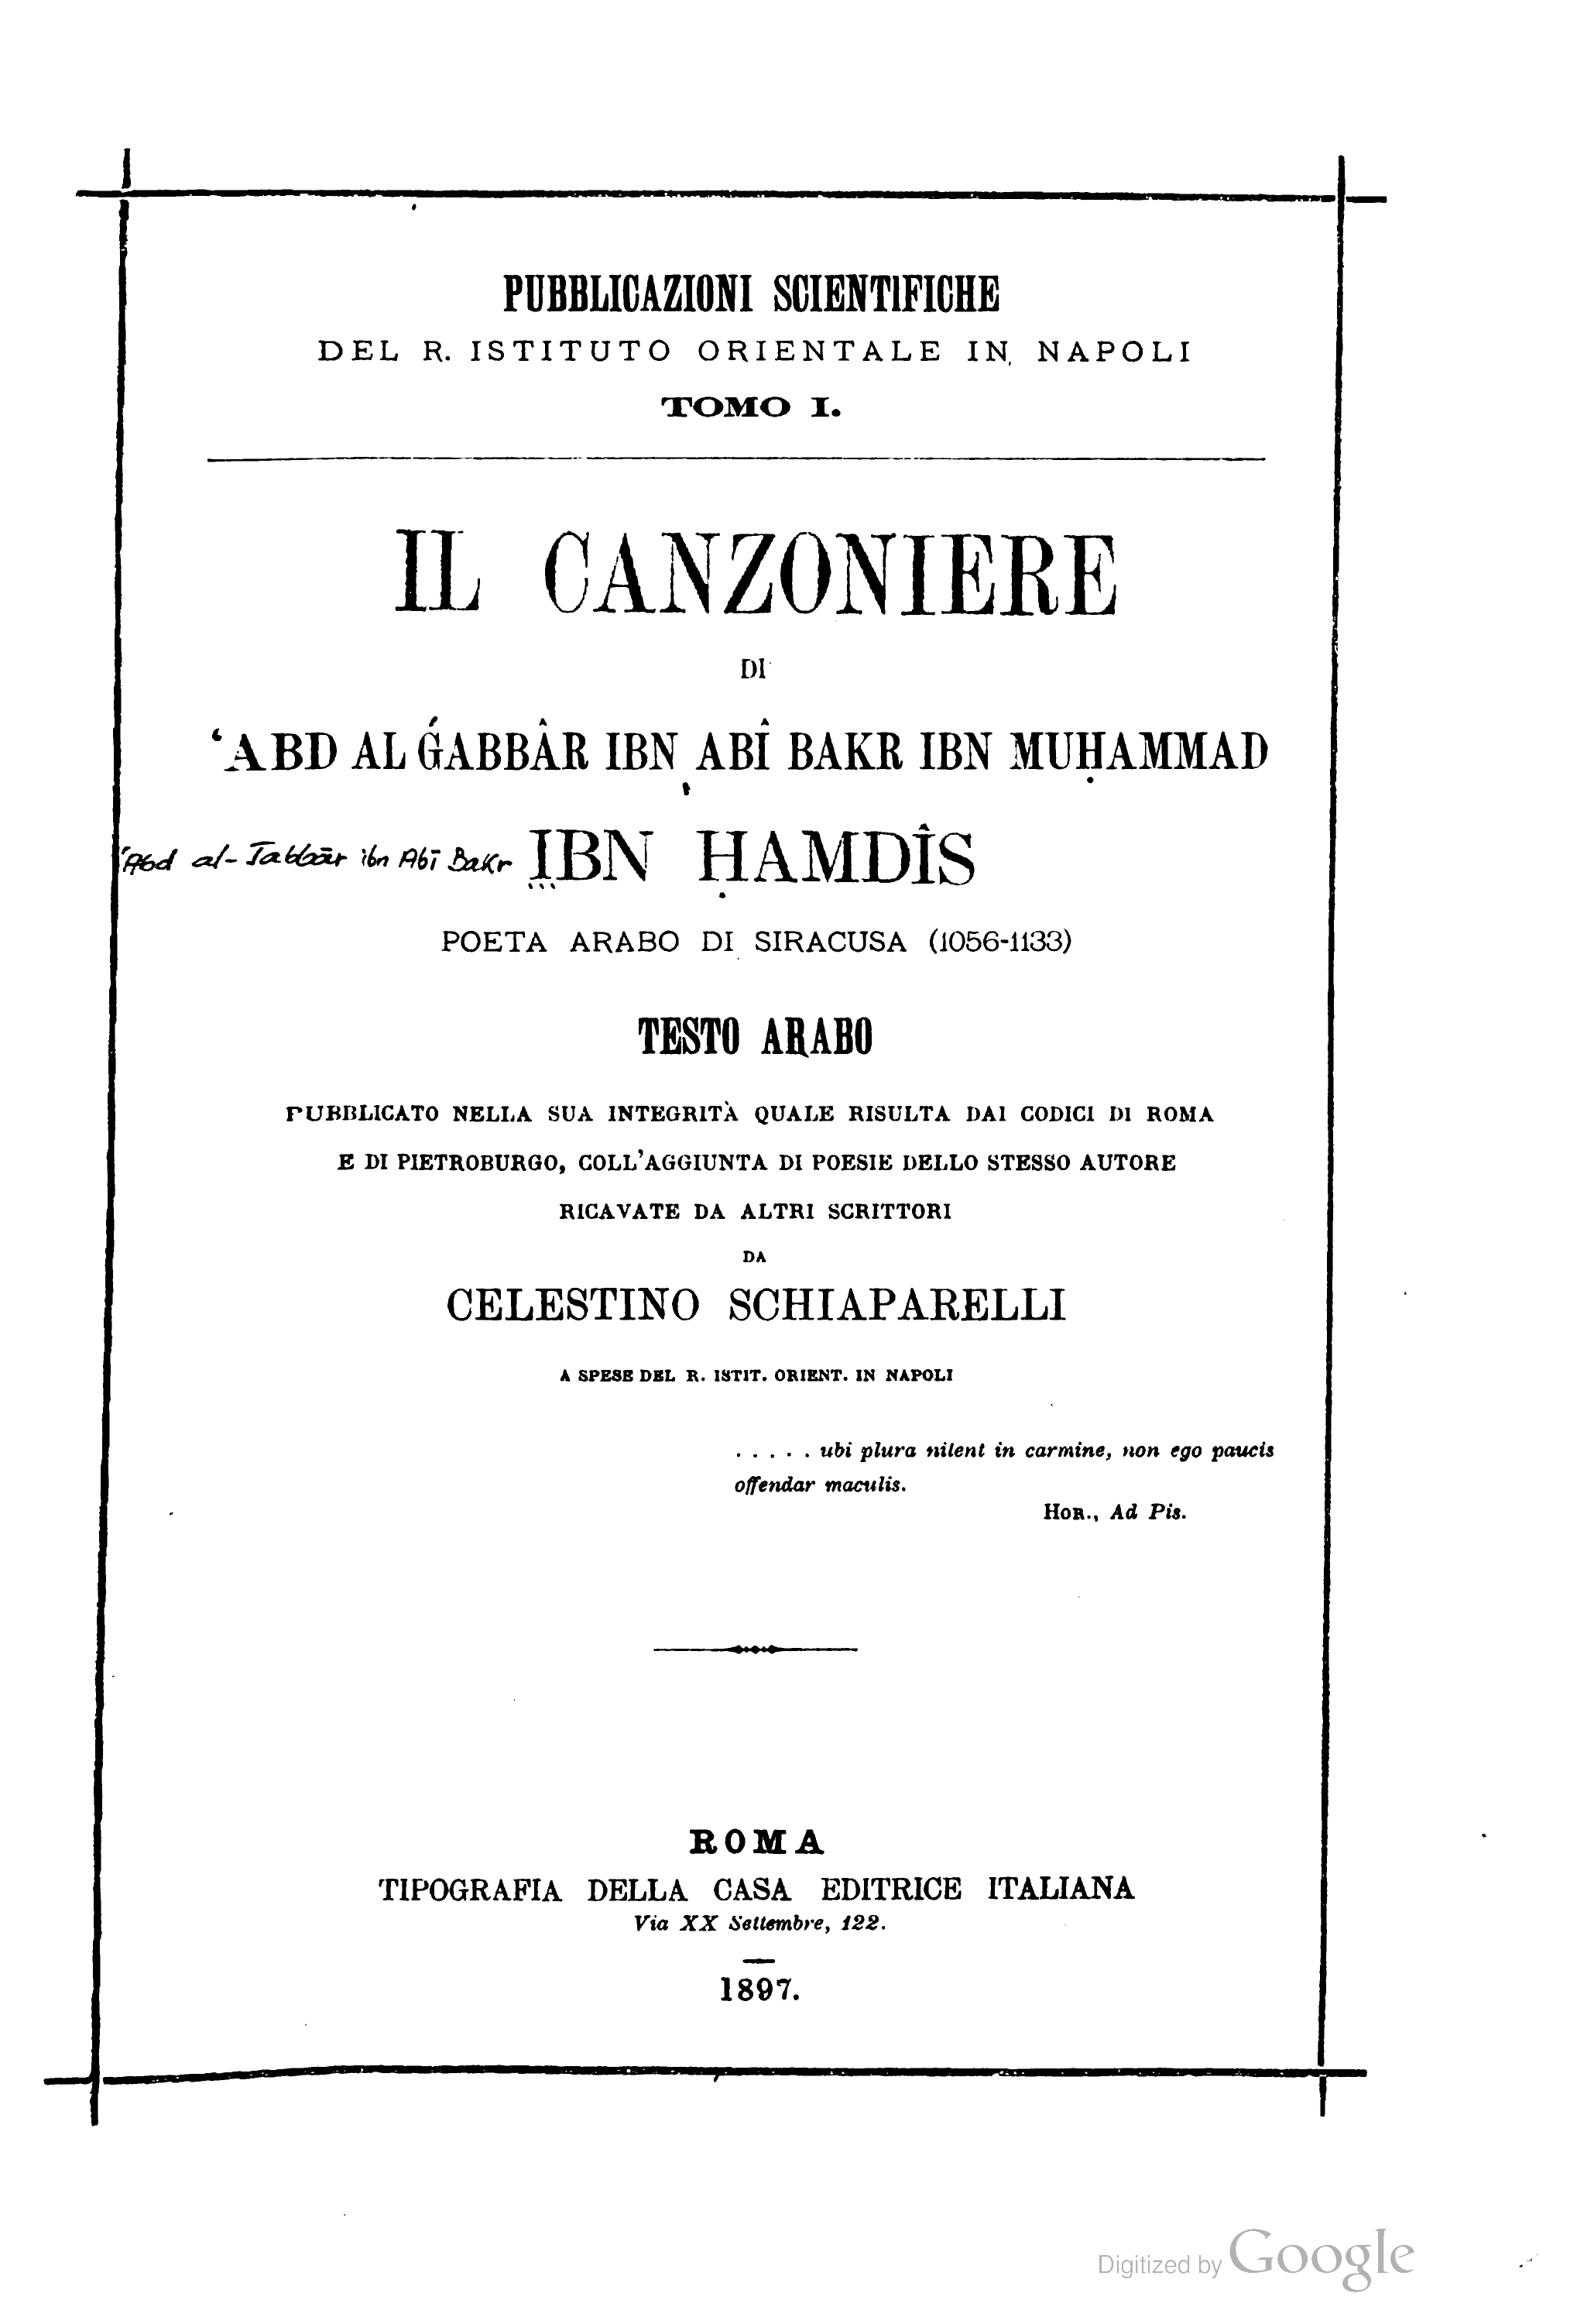 PUBBLICAZIONI SCIENTIFICHE
DEL R. ISTITUTO ORIENTALE IN NAPOLI
TOMO I.
IL CANZONIERE
DI
‘ABD AL ǴABBÂR IBN ABÎ BAKR IBN MUḤAMMAD
'Abd al-Jabbār ibn Abī Bakr IBN ḤAMDÎS
POETA ARABO DI SIRACUSA (1056-1133)
TESTO ARABO
PUBBLICATO NELLA SUA INTEGRITÀ QUALE RISULTA DAI CODICI DI ROMA
E DI PIETROBURGO, COLL'AGGIUNTA DI POESIE DELLO STESSO AUTORE
RICAVATE DA ALTRI SCRITTORI
DA
CELESTINO SCHIAPARELLI
A SPESE DEL R. ISTIT. ORIENT. IN NAPOLI
. . . . . ubi plura nitent in carmine, non ego paucis
offendar maculis.
HOR., Ad Pis.
ROMA
TIPOGRAFIA DELLA CASA EDITRICE ITALIANA
Via XX Settembre, 122.
1897.
Digitized by Google